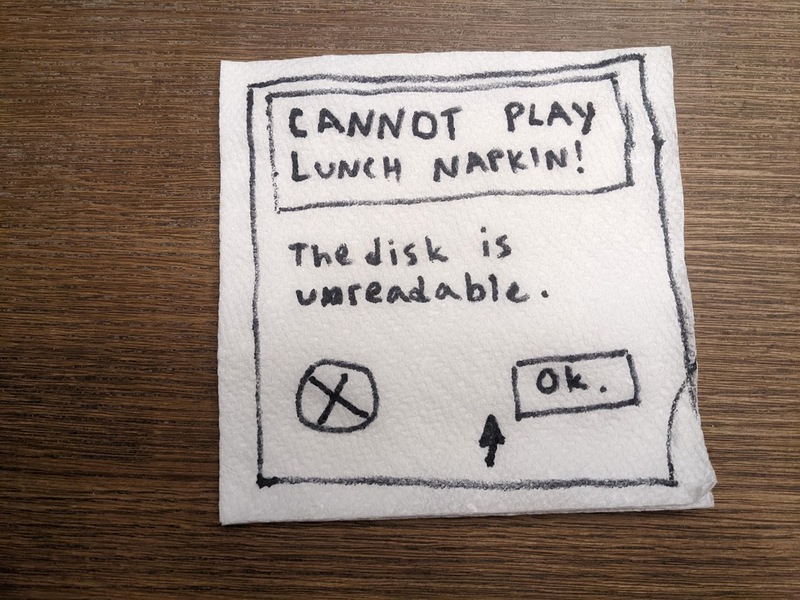 CANNOT PLAY
LUNCH NAPKIN!
The disk is
unreadable.
X
Ok.